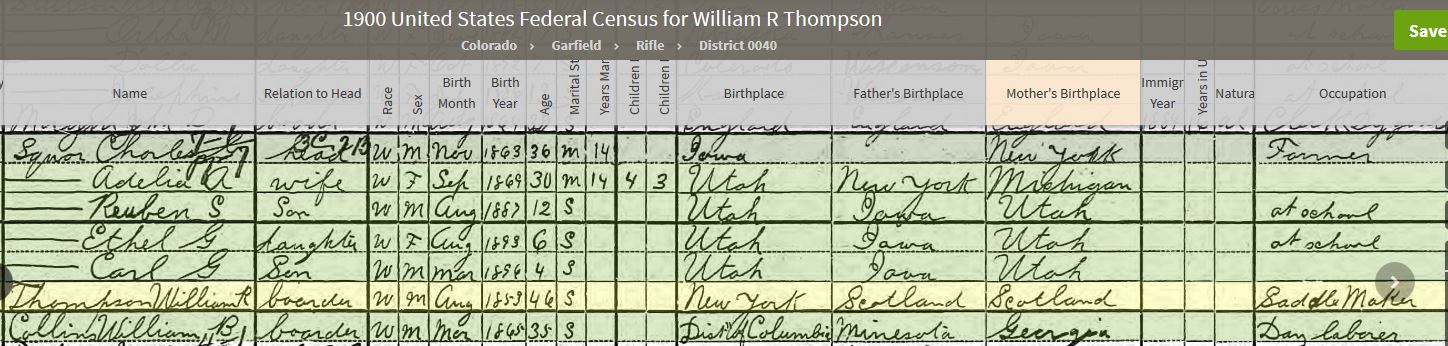 1900 United States Federal Census for William R Thompson
Colorado › Garfield › Rifle › District 0040
Save
Name Relation to Head Race Sex Birth Month Birth Year Age Marital St Years Mar Children Children Birthplace Father's Birthplace Mother's Birthplace Immigr Year Years in U Natura Occupation
Charles head W M Nov 1863 36 M 14 Iowa New York Farmer
Adelia A wife W F Sep 1869 30 M 14 4 3 Utah New York Michigan
Reuben S Son W M Aug 1887 12 S Utah Iowa Utah at school
Ethel G daughter W F Aug 1893 6 S Utah Iowa Utah at school
Earl G Son W M Mar 1896 4 S Utah Iowa Utah
Thompson William R boarder W M Aug 1853 46 S New York Scotland Scotland Saddle Maker
Collins William B boarder W M Mar 1865 35 S Dist of Columbia Minesota Georgia Day laborer